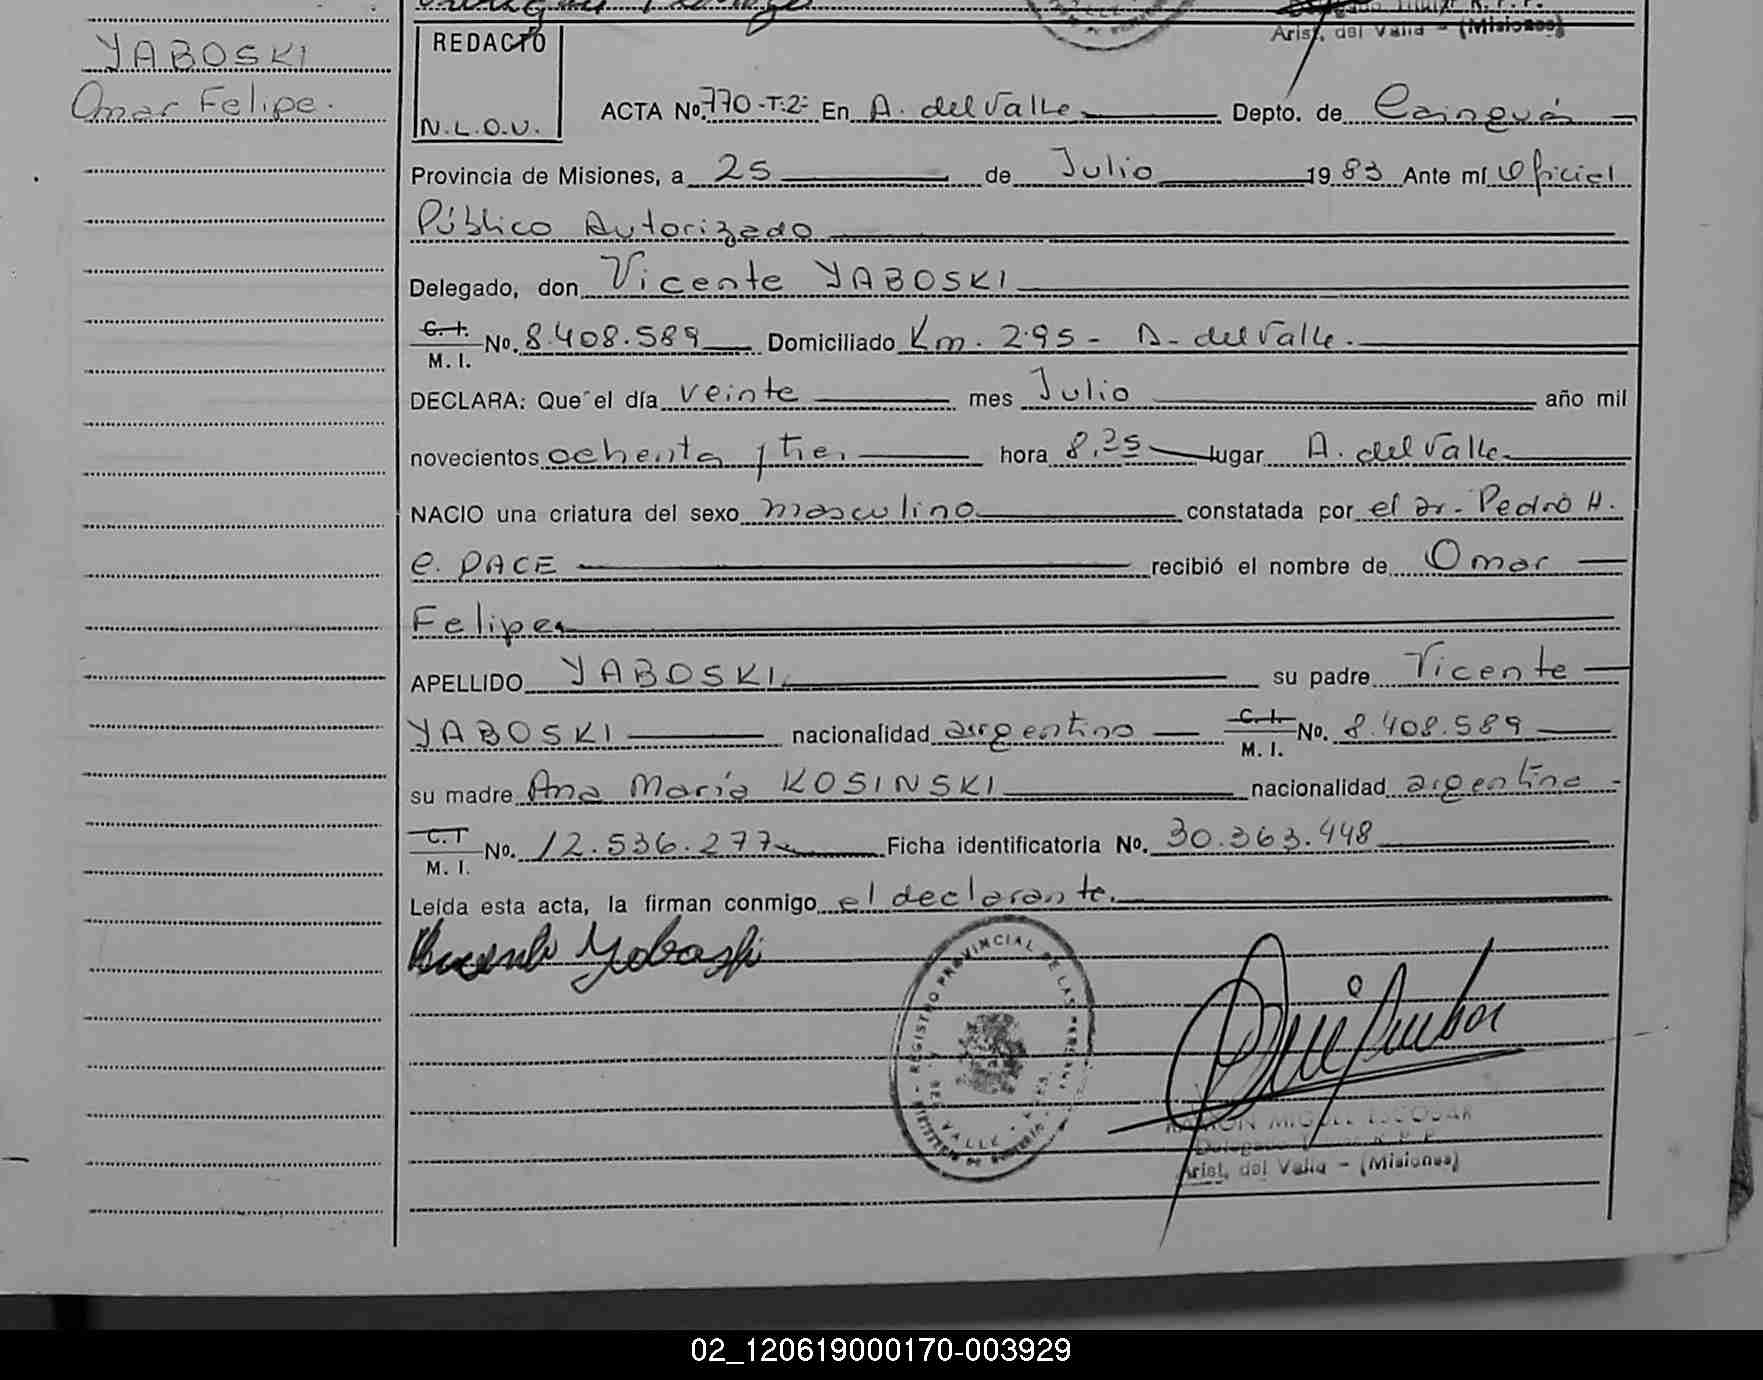 Arist. del Valle - (Misiones)
YABOSKI
Omar Felipe.
REDACTO
N.L.O.U.
ACTA No. 770-T:2: En A. del Valle Depto. de Cainguás
Provincia de Misiones, a 25 de Julio 1983 Ante mí Oficial
Público Autorizado
Delegado, don Vicente YABOSKI
C. I. M. I. No. 8.408.589 Domiciliado Km. 295- A. del Valle.
DECLARA: Que el día veinte mes Julio año mil
novecientos ochenta y tres hora 8,25 lugar A. del Valle
NACIO una criatura del sexo masculino constatada por el Dr. Pedro H.
e. PACE recibió el nombre de Omar
Felipe
APELLIDO YABOSKI su padre Vicente
YABOSKI nacionalidad argentino C. I. M. I. No. 8.408.589
su madre Ana María KOSINSKI nacionalidad argentina
C. I M. I. No. 12.536.277 Ficha identificatoria No. 30.363.448
Leída esta acta, la firman conmigo el declarante.
Vicente Yaboski
REGISTRO PROVINCIAL DE LAS PERSONAS
DEL VALLE
RAMON MIGUEL ESCOBAR
Delegado Titular R. P. P.
Arist. del Valle - (Misiones)
02_120619000170-003929